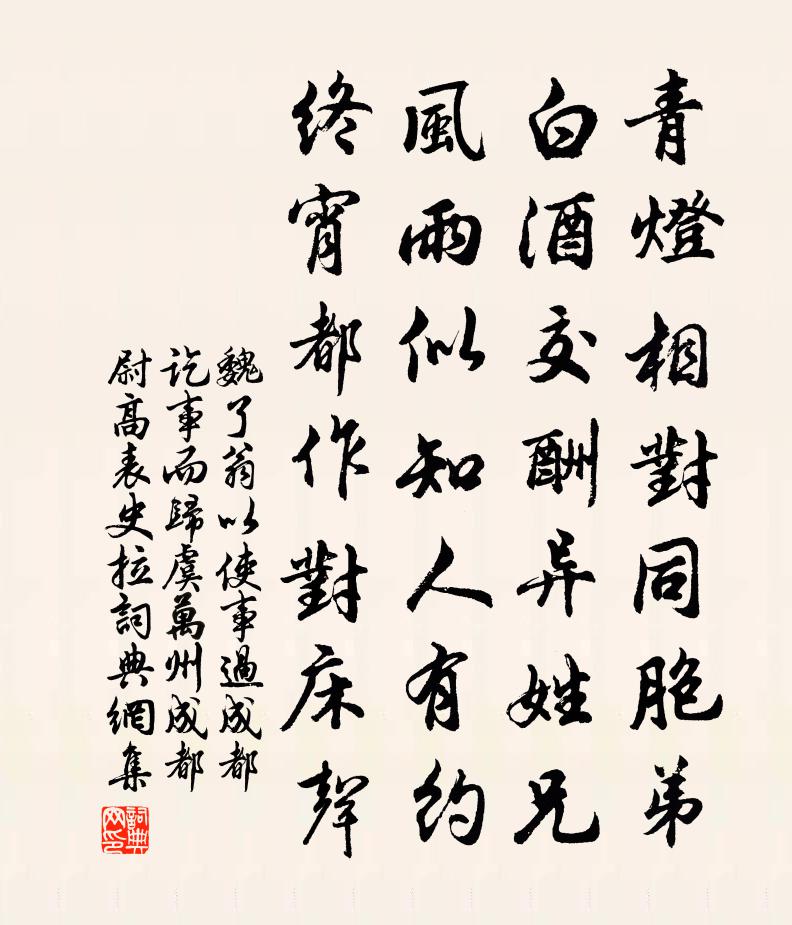 青燈相對同胞弟
白酒交酬异姓兄
風雨似知人有約
終宵都作對床聲
魏了翁以使事過成都
訖事而歸虞萬州成都
尉高表史拉詞典網集
詞典網印